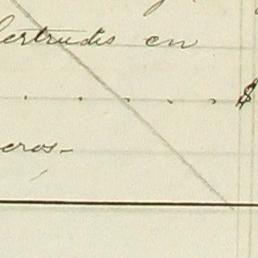 ertrudis en
. . . . . . $
eros-